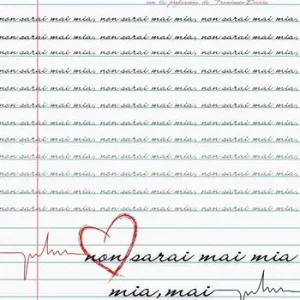 con la prefazione di
non sarai mai mia, non sarai mai mia, non sarai mai mia,
non sarai mai mia, non sarai mai mia, non sarai mai mia,
non sarai mai mia, non sarai mai mia, non sarai mai mia,
non sarai mai mia, non sarai mai mia, non sarai mai mia,
non sarai mai mia, non sarai mai mia, non sarai mai mia,
non sarai mai mia, non sarai mai mia, non sarai mai mia,
non sarai mai mia, non sarai mai mia, non sarai mai mia,
non sarai mai mia, non sarai mai mia, non sarai mai mia,
non sarai mai mia, non sarai mai mia, non sarai mai mia,
non sarai mai mia, non sarai mai mia, non sarai mai mia,
non sarai mai mia, non sarai mai mia, non sarai mai mia,
non sarai mai mia, non sarai mai mia, non sarai mai mia,
non sarai mai mia
mia, mai